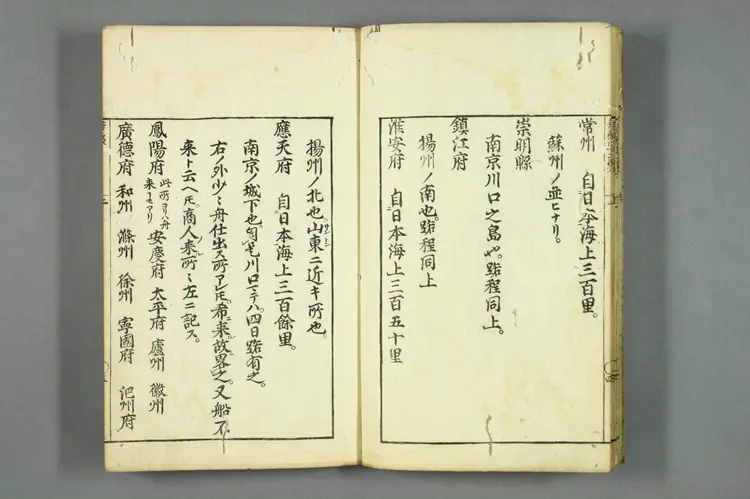 常州 自日本海上三百里。
蘇州ノ並ヒナリ。
崇明縣
南京川口之島也。路程同上。
鎮江府
揚州ノ南也。路程同上
淮安府 自日本海上三百五十里
揚州ノ北也。山東ニ近キ所也。
應天府 自日本海上三百餘里。
南京ノ城下也。川口ヨリハ四日路有之。
右ノ外少〻舟仕出ス所アレ𪜈。希ニ来故畧之。又船不
来ト云ヘ𪜈。商人来ル所〻左ニ記ス。
鳳陽府 此所ヨリハ舟来ヿモアリ 安慶府 太平府 廬州 徽州
廣德府 和州 滁州 徐州 寧國府 池州府